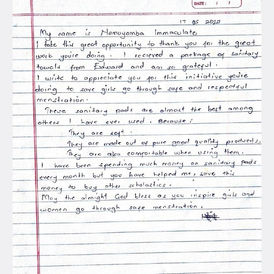 DATE:
17 05 2020
My name is Immaculate.
I take this great opportunity to thank you for the great
work you're doing. I received a package of sanitary
towels from Edward and am so grateful.
I write to appreciate you for this initiative you're
doing to save girls go through safe and respectful
menstruation.
These sanitary pads are almost the best among
others I have ever used. Because:
They are soft
They are made out of pure good quality products.
They are also comfortable when using them.
I have been spending much money on sanitary pads
every month but you have helped me, save this
money to buy other scholastics.
May the almight God bless as you inspire girls and
women go through safe menstruation.